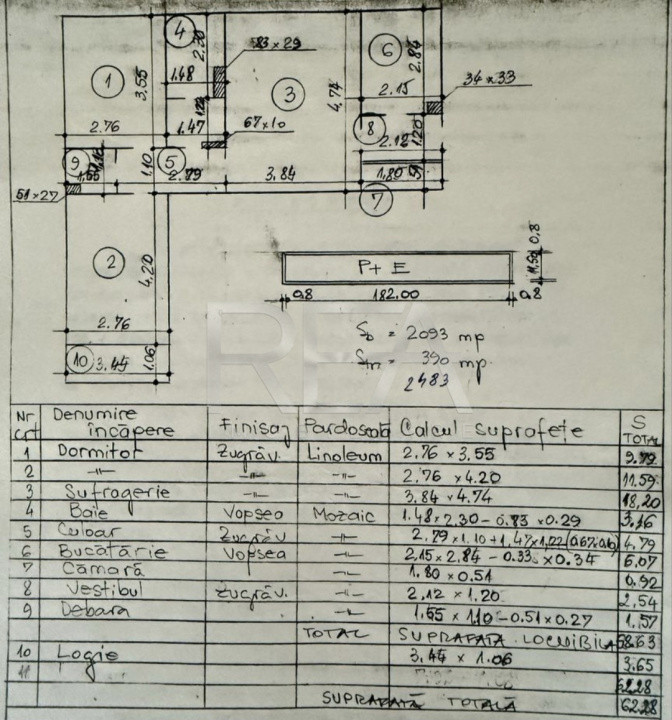 4
2.30
83 x 29
1
3.55
1.48
3
4.74
6
2.84
2.15
34 x 33
1.22
2.76
1.47
67 x 10
8
1.20
2.12
9
1.65
1.10
5
2.79
3.84
1.80
7
51 x 27
2
4.20
P + E
11,50
0,8
0,8
182.00
0,8
2.76
10
3.44
1.06
Sb = 2093 mp
= 390 mp
2483
RFA
Nr crt Denumire încăpere Finisaj Pardoseală Calcul suprafețe S TOTAL
1 Dormitor Zugrăv. Linoleum 2.76 x 3.55 9.79
2 -||- -||- -||- 2.76 x 4.20 11.59
3 Sufragerie -||- -||- 3.84 x 4.74 18,20
4 Baie Vopsea Mozaic 1.48 x 2.30 - 0.83 x 0.29 3,16
5 Culoar Zugrăv -||- 2,79 x 1.10 + 1,47 x 1,22 4,79
6 Bucătărie Vopsea -||- 2,15 x 2,84 - 0.33 x 0.34 6,07
7 Cămară -||- 1.80 x 0.51 0,92
8 Vestibul Zugrăv. -||- 2,12 x 1.20 2,54
9 Debara -||- 1,65 x 1,10 - 0.51 x 0.27 1,57
TOTAL SUPRAFAȚA LOCUIBILĂ 58.63
10 Logie 3.44 x 1.06 3.65
11 62.28
SUPRAFAȚĂ TOTALĂ 62.28